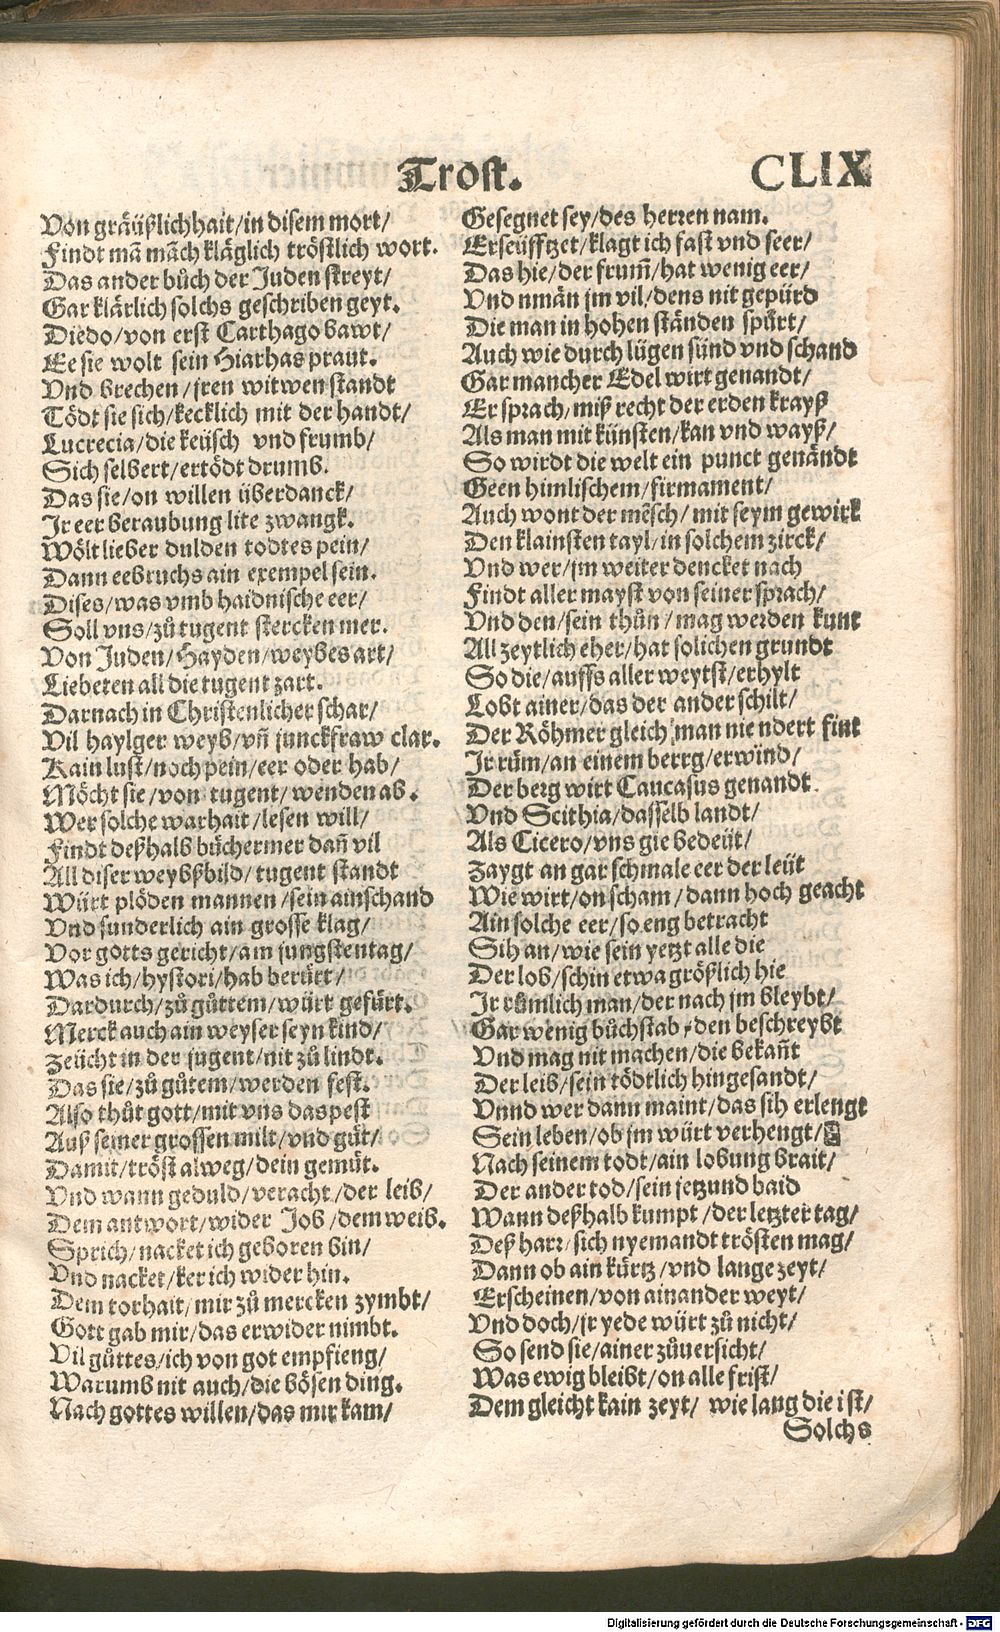 Trost.
CLIX
Von gräußlichhait/in disem mort/
Findt mã mãch kläglich tröstlich wort.
Das ander bůch der Juden streyt/
Gar klärlich solchs geschriben geyt.
Diedo/von erst Carthago bawt/
Ee sie wolt sein Hiarhas praut.
Vnd brechen/jren witwen standt
Tödt sie sich/kecklich mit der handt/
Lucrecia/die keüsch vnd frumb/
Sich selbert/ertödt drumb.
Das sie/on willen überdanck/
Jr eer beraubung lite zwangk.
Wölt lieber dulden todtes pein/
Dann eebruchs ain exempel sein.
Dises/was vmb haidnische eer/
Soll vns/zů tugent stercken mer.
Von Juden/Hayden/weybes art/
Liebeten all die tugent zart.
Darnach in Christenlicher schar/
Vil haylger weyb/vñ junckfraw clar.
Kain lust/noch pein/eer oder hab/
Möcht sie/von tugent/wenden ab.
Wer solche warhait/lesen will/
Findt deßhalb büchermer dañ vil
All diser weybßbild/tugent standt
Würt plöden mannen/sein ainschand
Vnd sunderlich ain grosse klag/
Vor gotts gericht/am jungstentag/
Was ich/hystori/hab berürt/
Dardurch/zů gůttem/würt gefürt.
Merck auch ain weyser seyn kind/
Zeücht in der jugent/nit zů lindt.
Das sie/zů gůtem/werden fest.
Also thůt gott/mit vns das pest
Auß seiner grossen milt/vnd güt/
Damit/tröst alweg/dein gemüt.
Vnd wann geduld/veracht/der leib/
Dem antwort/wider Job/dem weib.
Sprich/nacket ich geboren bin/
Vnd nacket/ker ich wider hin.
Dem torhait/mir zů mercken zymbt/
Gott gab mir/das er wider nimbt.
Vil gůttes/ich von got empfieng/
Warumb nit auch/die bösen ding.
Nach gottes willen/das mir kam/
Gesegnet sey/des herren nam.
Erseüfftzet/klagt ich fast vnd seer/
Das hie/der frum̃/hat wenig eer/
Vnd nmän jm vil/dens nit gepürd
Die man in hohen ständen spürt/
Auch wie durch lügen sünd vnd schand
Gar mancher Edel wirt genandt/
Er sprach/miß recht der erden krayß
Als man mit künsten/kan vnd wayß/
So wirdt die welt ein punct genändt
Geen himlischem/firmament/
Auch wont der mẽsch/mit seym gewirk
Den klainsten tayl/in solchem zirck/
Vnd wer/jm weiter dencket nach
Findt aller mayst von seiner sprach/
Vnd den/sein thůn/mag werden kunt
All zeytlich eher/hat solichen grundt
So die/auffs aller weytst/erhylt
Lobt ainer/das der ander schilt/
Der Röhmer gleich man niendert fint
Jr rům/an einem berrg/erwind/
Der berg wirt Caucasus genandt.
Vnd Scithia/dasselb landt/
Als Cicero/vns gie bedeüt/
Zaygt an gar schmale eer der leüt
Wie wirt/on scham/dann hoch geacht
Ain solche eer/so eng betracht
Sih an/wie sein yetzt alle die
Der lob/schin etwa größlich hie
Jr růmlich man/der nach jm bleybt/
Gar wenig bůchstab/den beschreybt
Vnd mag nit machen/die bekañt
Der leib/sein tödtlich hingesandt/
Vnnd wer dann maint/das sih erlengt
Sein leben/ob jm würt verhengt/
Nach seinem todt/ain lobung brait/
Der ander tod/sein jetzund baid
Wann deßhalb kumpt/der letzter tag/
Deß harr/sich nyemandt trösten mag/
Dann ob ain kürtz/vnd lange zeyt/
Erscheinen/von ainander weyt/
Vnd doch/jr yede würt zů nicht/
So send sie/ainer zůuersicht/
Was ewig bleibt/on alle frist/
Dem gleicht kain zeyt/wie lang die ist/
Solchs
Digitalisierung gefördert durch die Deutsche Forschungsgemeinschaft - DFG